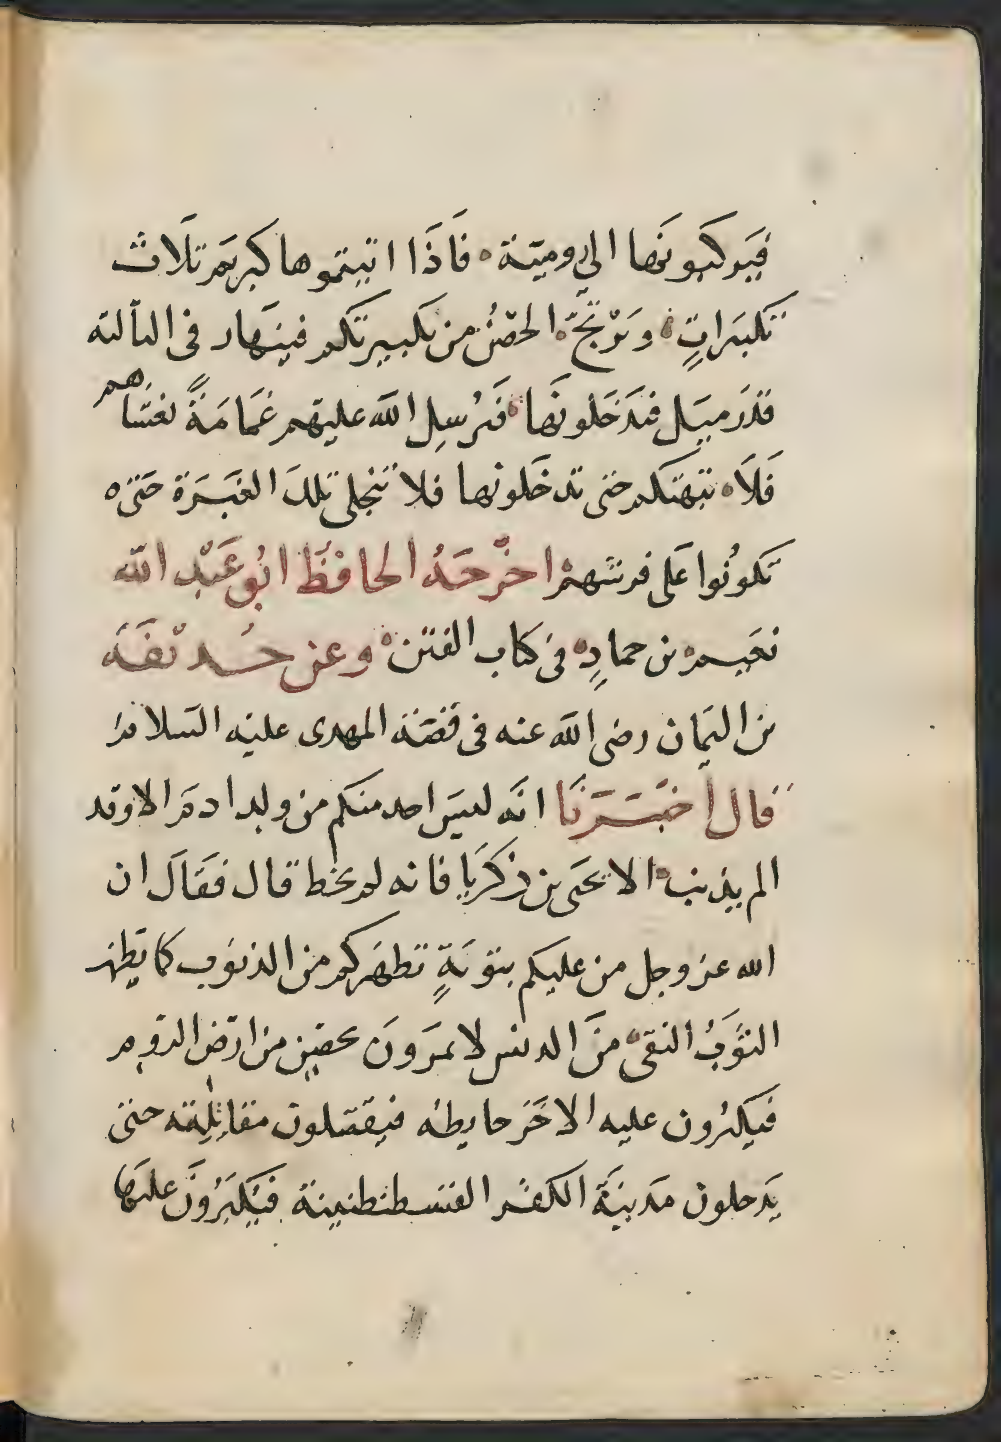 فيركبونها الى رومية فاذا اتيتموها كبرتم ثلاث
تكبيرات ويرتج الحصن من تكبيرتكم فينهار في الثالثة
قدر ميل فتدخلونها فيرسل الله عليهم غمامة تغشاهم
فلا تنهنكم حتى تدخلونها فلا تنجلي تلك الغبرة حتى
تكونوا على فرشهم اخرجه الحافظ ابو عبد الله
نعيم بن حماد في كتاب الفتن وعن حذيفة
بن اليمان رضى الله عنه فى قصة المهدى عليه السلام
قال اخبرنا انه ليس احد منكم من ولد ادم الا وقد
الم بذنب الا يحيى بن زكريا فانه لم يخط قال فقال ان
الله عز وجل من عليكم بتوبة تطهركم من الذنوب كما يطهر
الثوب النقى من الدنس لا تمرون بحصن من ارض الروم
فيكبرون عليه الا خر حايطه فيقتلون مقاتلته حتى
يدخلون مدينة الكفر القسطنطينة فيكبرون عليها